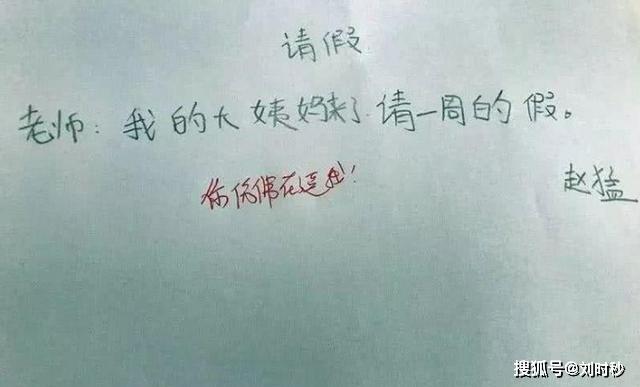 请假
老师：我的大姨妈来了请一周的假。
你仿佛在逗我！
赵猛
搜狐号@刘时秒